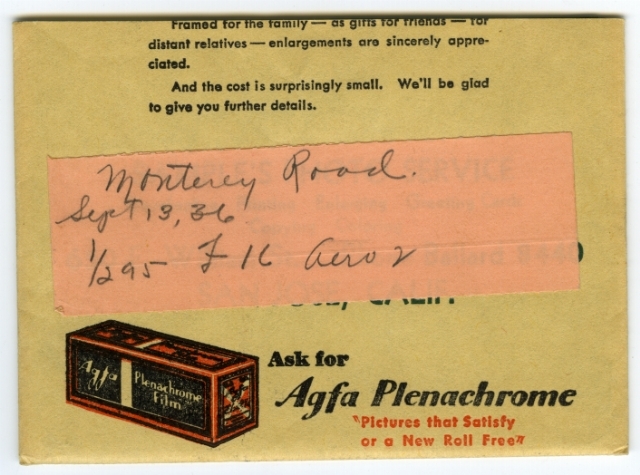 Framed for the family — as gifts for friends — for
distant relatives — enlargements are sincerely appre-
ciated.
And the cost is surprisingly small. We'll be glad
to give you further details.
Monterey Road.
Sept 13, 36
1/295 F 16 Aero 2
SERVICE
Ballard 8440
CALIF.
Ask for
Agfa Plenachrome
"Pictures that Satisfy
or a New Roll Free"
Agfa
Plenachrome
Film